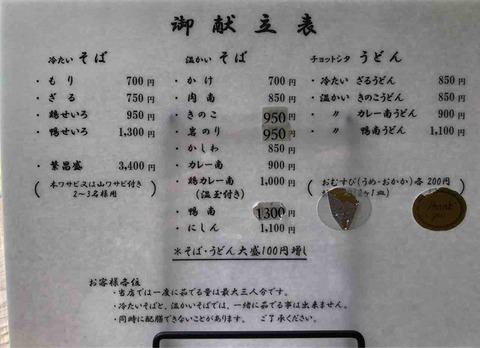 御献立表
冷たい そば
・もり 700円
・ざる 750円
・鶏せいろ 950円
・鴨せいろ 1,300円
・繁昌盛 3,400円
(本ワサビ又は山ワサビ付き
2~3名様用)
温かい そば
・かけ 700円
・肉南 850円
・きのこ 950円
・岩のり 950円
・かしわ 850
・カレー南 900円
・鶏カレー南 1,000円
(温玉付き)
・鴨南 1300円
・にしん 1,100円
*そば・うどん大盛100円増し
チョットシタ うどん
・冷たい ざるうどん 850円
・温かい きのこうどん 850円
・〃 カレー南うどん 900円
・〃 鴨南うどん 1,100円
(おむすび(うめ・おかか)各 200円
Thank you
お客様各位
・当店では一度に茹でる量は最大三人分です。
・冷たいそばと、温かいそばでは、一緒に茹でる事は出来ません。
・同時に配膳できないことがあります。 ご了承ください。